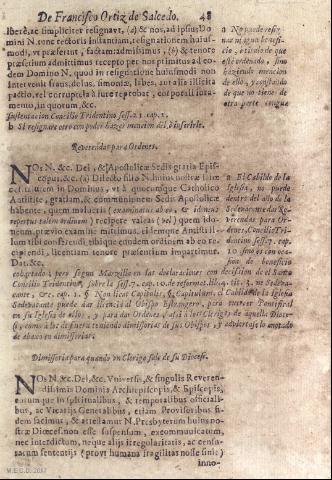 De Francisco Ortiz de Salcedo. 48
liberè, ac simpliciter resignavt, (a) & nos, ad ipsus Do
mini N. tunc rectoris instantiam, resignationem huius-
modi, vt præfertur, factam admisimus, (b) & tenore
præsetium admittimus recepto per nos primitus ab eo-
dem Domino N. quod in resignatione huiusmodi non
intervenit fraus, dolus, simoniæ, labes, aut alia illicita
pactio, vel corruptela iure reprobata, corporali iura-
mento, in quorum, &c.
a No puede resig-
nar ninguno be-
ficio, à titulo de que
esté ordenado, sino
haziendo mencion
de ello, y constando
de que no tiene de
otra parte congrua
sustentacion Concilio Tridentino sess. 21. cap. 2.
b Si resignare otro con poder hazer mencion del, è insertirle.
Reverendas para Ordenes.
NOs N. &c. Dei, & Apostolicæ Sedis gratia Epis-
copus, &c. (a) Dilecto filio N. huius nostræ
in Dominus, vt à quocumque Catholico
Antistite, gratiam, & communionem Sedis Apostolicæ
habente, quem malueris (examinatus ab eo, & idoneus
repertus talem ordinem) recipere valeas (vel) quem ido-
neum, prævio examine misimus, eidemque Antisti-
tum tibi conferendi, tibique eundem ordinem ab eo re-
cipiendi, licentiam tenore præsentium impartimur.
Dat. &c.
a El Cabildo de la
Iglesia, no puede
dentro del año de la
Sedevacante dar Re-
verendas para Or-
denes, Concilio Tri-
dentino sess. 7. cap.
10. sino es con oca-
sion de beneficio
cobrado; pero segun Marzilla en las declaraciones con decision de el Santo
Concilio Tridentino, sobre la sess. 7. cap. 10. de reformat. lib. 4. tit. 3. ne Sedeva-
cante, &c. cap. 1. §. Non licet Capitulis, & Capitulum, el Cabildo de la Iglesia
Sedevacante puede dar licencia al Obispo Estrangero, para exercer Pontifical
en su Iglesia de ellos, y para dar Ordenes, assi à los Clerigos de aquella Dioce-
si, como à los de fuera teniendo dimissorias de sus Obispos, y adviertase lo notado
de abaxo en dimissorias;
Dimissoria para quando vn Clerigo sale de su Diocesi.
NOs N. &c. Dei, &c. Vniversis, & singulis Reveren-
dissimis Dominis Archiepiscopis, & Episcopis,
eorumque in spiritualibus, & temporalibus officiali-
bus, ac Vicarijs Generalibus, etiam Provisoribus fi-
dem facimus, & attestamur N. Presbyterum huius no-
stræ Diœces. non esse suspensum, excommunicatum,
nec interdictum, neque alijs irregularitatis, ac censu-
rarum sententijs (prout humana fragilitas nosse sinit)
inno-
M.E.C.D. 2017